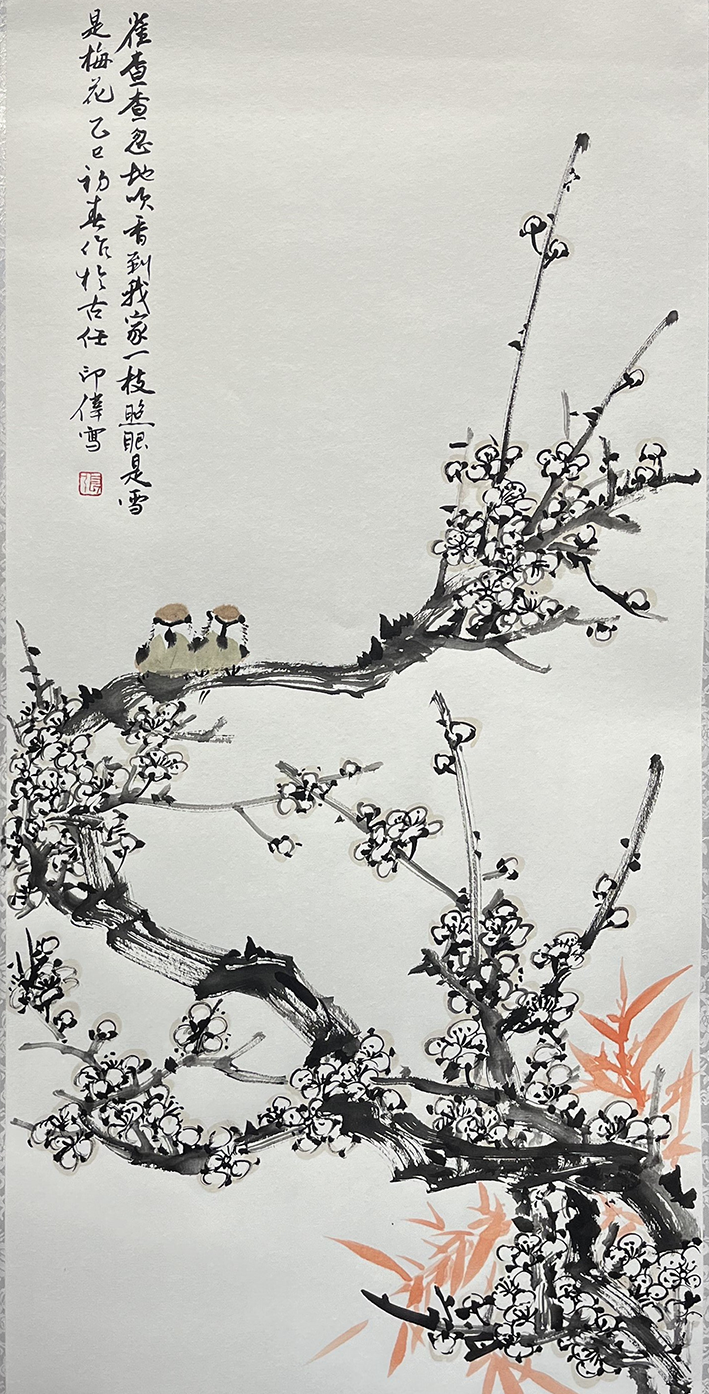 雀查查忽地吹香到我家一枝照眼是雪
是梅花 乙巳初春作於古任 印偉寫
張